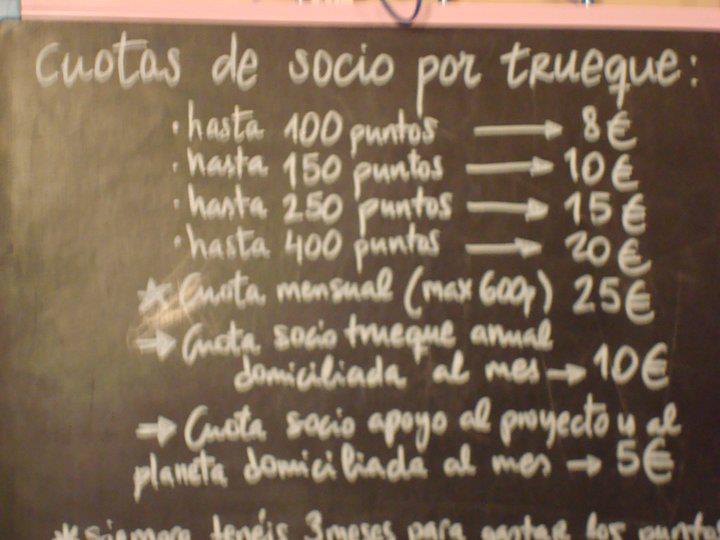 Cuotas de socio por trueque:
· hasta 100 puntos → 8€
· hasta 150 puntos → 10€
· hasta 250 puntos → 15€
· hasta 400 puntos → 20€
* Cuota mensual (max 600p) 25€
→ Cuota socio trueque anual
domiciliada al mes → 10€
→ Cuota socio apoyo al proyecto y al
planeta domiciliada al mes → 5€
* siempre tenéis 3 meses para gastar los puntos